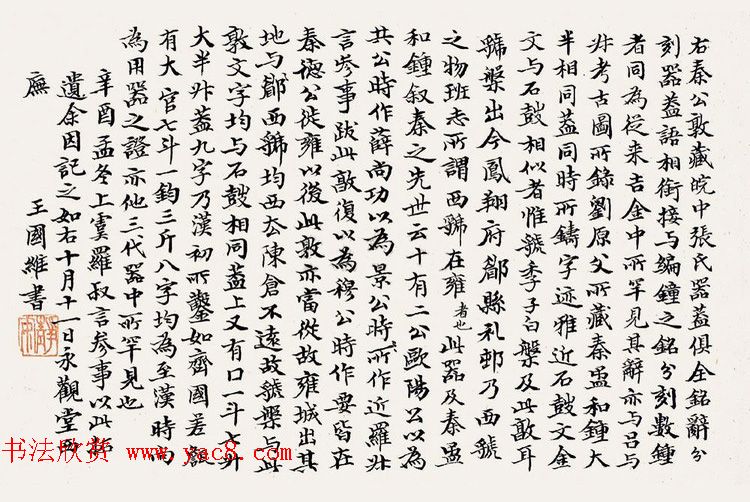 右秦公敦藏皖中張氏器蓋俱全銘辭分
刻器蓋語相銜接与編鐘之銘分刻數鐘
者同為從来吉金中所罕見其辭亦与吕与
叔考古圖所錄劉原父所藏秦盄和鐘大
半相同蓋同時所鑄字迹雅近石鼓文金
文与石鼓相似者惟虢季子白槃及此敦耳
虢槃出今鳳翔府郿縣礼邨乃西虢
之物班志所謂西虢在雍者也此器及秦盄
和鍾叙秦之先世云十有二公歐陽公以為
共公時作薛尚功以為景公時所作近羅叔
言參事跋此敦復以為穆公時作要皆在
秦德公徙雍以後此敦亦當從故雍城出其
地与郿西虢均西去陳倉不遠故虢槃与此
敦文字均与石鼓相同蓋上又有口一斗七升
大半升蓋九字乃漢初所鑿如齊國差
有大官七斗一鈞三斤八字均為至漢時尚
為用器之證亦他三代器中所罕見也
辛酉孟冬上虞羅叔言參事以此拓
遺余因記之如右十月十一日永觀堂西
廡
王國維書
静安
书法欣赏 www.yac8.com